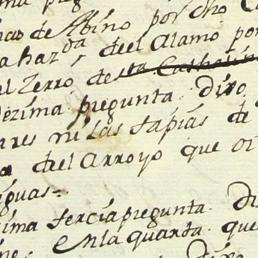 de Albino por dho Ca
a haz.da del Alamo por
el Zerro de sta Cathalin
dezima pregunta. Dixo
ares ni las tapias de
del Arroyo que oi
iguas=
ima tercia pregunta. Di
En la quarta. que